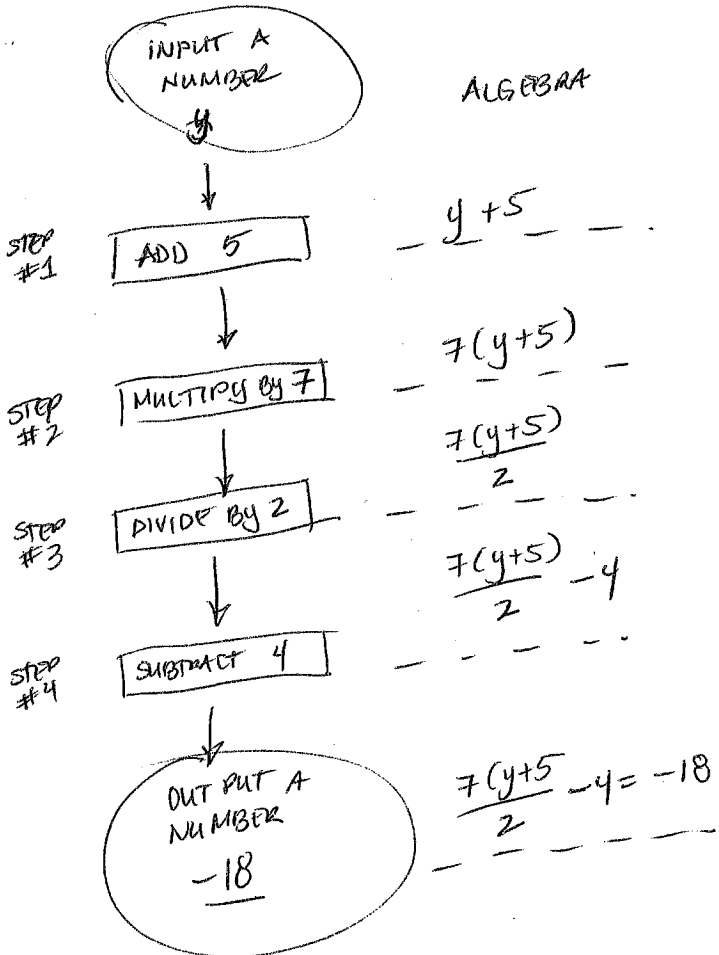 INPUT A
NUMBER
y
ALGEBRA
STEP
#1
ADD 5
y+5
STEP
#2
MULTIPLY BY 7
7(y+5)
STEP
#3
DIVIDE BY 2
7(y+5)
2
STEP
#4
SUBTRACT 4
7(y+5)
2
-4
OUT PUT A
NUMBER
-18
7(y+5
2
-4= -18